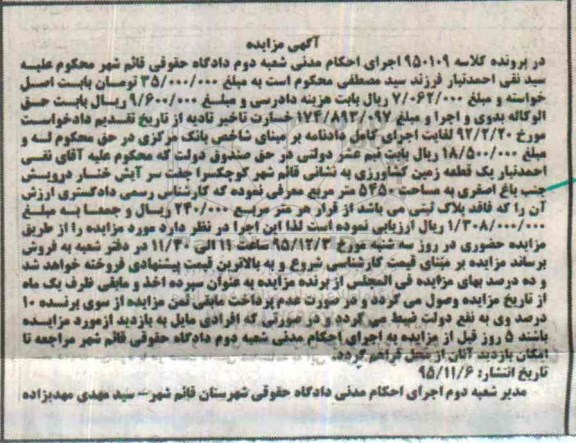 آگهی مزایده
در پرونده کلاسه ۹۵۰۱۰۹ اجرای احکام مدنی شعبه دوم دادگاه حقوقی قائم شهر محکوم علیه
سید نقی احمدتبار فرزند سید مصطفی محکوم است به مبلغ ۳۵/۰۰۰/۰۰۰ تومان بابت اصل
خواسته و مبلغ ۷/۰۶۲/۰۰۰ ریال بابت هزینه دادرسی و مبلغ ۹/۶۰۰/۰۰۰ ریال بابت حق
الوکاله بدوی و اجرا و مبلغ ۱۷۴/۸۹۳/۰۹۷ خسارت تاخیر تادیه از تاریخ تقدیم دادخواست
مورخ ۹۲/۲/۲۰ لغایت اجرای کامل دادنامه بر مبنای شاخص بانک مرکزی در حق محکوم له و
مبلغ ۱۸/۵۰۰/۰۰۰ ریال بابت نیم عشر دولتی در حق صندوق دولت که محکوم علیه آقای نقی
احمدتبار یک قطعه زمین کشاورزی به نشانی قائم شهر کوچکسرا جفت سر آیش خنار درویش
جنب باغ اصغری به مساحت ۵۴۵۰ متر مربع معرفی نموده که کارشناس رسمی دادگستری ارزش
آن را که فاقد پلاک ثبتی می باشد از قرار هر متر مربع ۲۴۰/۰۰۰ ریال و جمعا به مبلغ
۱/۳۰۸/۰۰۰/۰۰۰ ریال ارزیابی نموده است لذا این اجرا در نظر دارد مورد مزایده را از طریق
مزایده حضوری در روز سه شنبه مورخ ۹۵/۱۲/۳ ساعت ۱۱ الی ۱۱/۳۰ در دفتر شعبه به فروش
برساند مزایده بر مبنای قیمت کارشناسی شروع و به بالاترین قیمت پیشنهادی فروخته خواهد شد
و ده درصد بهای مزایده فی المجلس از برنده مزایده به عنوان سپرده اخذ و مابقی ظرف یک ماه
از تاریخ مزایده وصول می گردد و در صورت عدم پرداخت مابقی ثمن مزایده از سوی برنده ۱۰
درصد وی به نفع دولت ضبط می گردد و در صورتی که افرادی مایل به بازدید از مورد مزایده
باشند ۵ روز قبل از مزایده به اجرای احکام مدنی شعبه دوم دادگاه حقوقی قائم شهر مراجعه تا
امکان بازدید آنان از محل فراهم گردد.
تاریخ انتشار: ۹۵/۱۱/۶
مدیر شعبه دوم اجرای احکام مدنی دادگاه حقوقی شهرستان قائم شهر – سید مهدی مهدیزاده